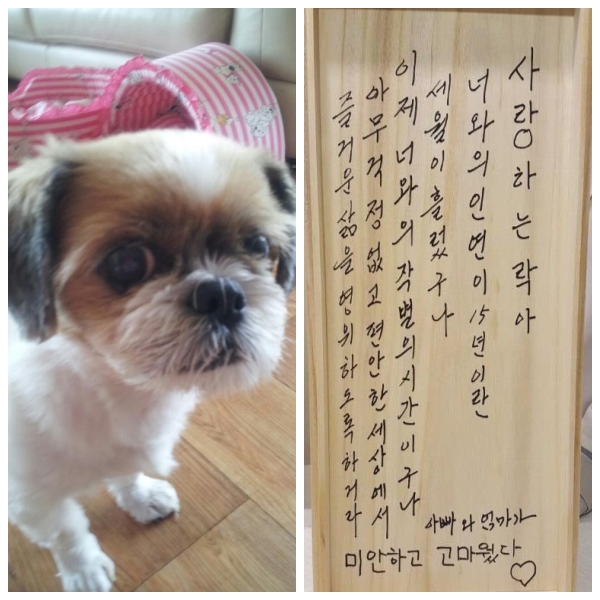 사랑하는 락아
너와의 인연이 15년이란
세월이 흘렀구나
이제 너와의 작별의 시간이구나
아무걱정없고 편안한 세상에서
즐거운 삶을 영위하도록 하거라
아빠와 엄마가
미안하고 고마웠다♡